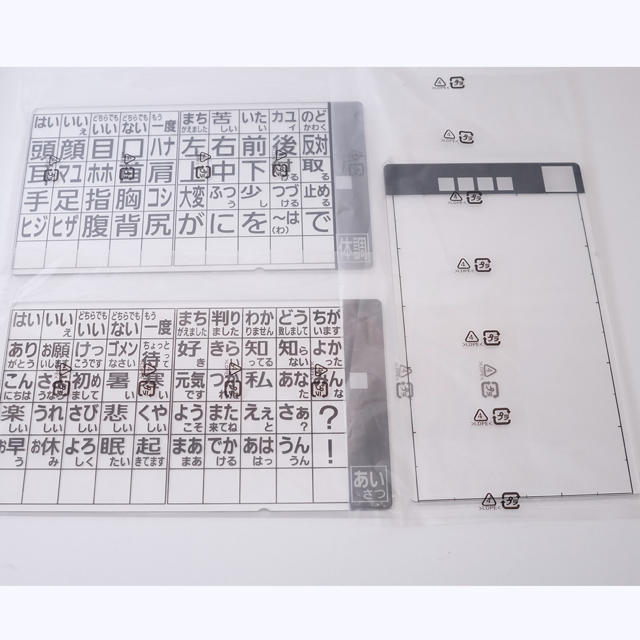 はい いいえ どちらでもいい どちらでもない もう一度 まちがえました 苦しい いたい カユイ のどかわく
頭 顔 目 口 ハナ 左 右 前 後 反対
耳 マユ ホホ 歯 肩 上 中 下 付ける 取る
手 足 指 胸 コシ 大変 ふつう 少し つづける 止める
ヒジ ヒザ 腹 背 尻 が に を 〜は(わ) で
体調
はい いいえ どちらでもいい どちらでもない もう一度 まちがえました 判りました わかりません どう致しまして ちがいます
ありがとう お願いします けっこうです ゴメンなさい ちょっと待って 好き きらい 知ってる 知らない よかった
こんにちは 初めまして 暑い 寒い 元気です つかれた 私 あなた みんな
楽しい うれしい さびしい 悲しい くやしい ようこそ また来てね えぇと さぁ? ?
お早う お休み よろしく 眠たい 起きてます まあまあ でかける あはっはっ うんうん !
あいさつ
4 プラ
>LDPE<
4 プラ
>LDPE<
4 プラ
>LDPE<
4 プラ
>LDPE<
4 プラ
>LDPE<
4 プラ
>LDPE<
4 プラ
>LDPE<